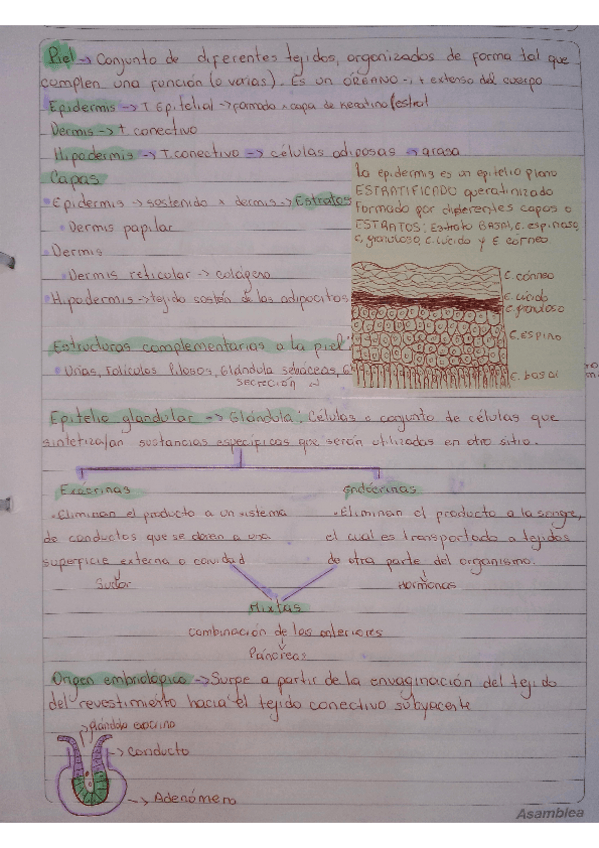 Piel → Conjunto de diferentes tejidos, organizados de forma tal que
complen una función (o varias). Es un ÓRGANO → + extenso del cuerpo
Epidermis → T Epitelial → formado x capa de keratino (estra)
Dermis → t. conectivo
Hipodermis → T. conectivo → células adiposas → grasa
Capas
Epidermis → sostenido x dermis → Estratos
Dermis papilar
Dermis
Dermis reticular → colágeno
Hipodermis → tejido sostén de los adipocitos
La epidermis es un epitelio plano
ESTRATIFICADO queratinizado
Formado por diferentes capas o
ESTRATOS: Estrato BASAL, E. espinoso,
E, granuloso, E. lúcido y E córneo.
E. córneo
E. lúcido
E. granuloso
E. ESPINO
E. basal
Estructuras complementarias a la piel
Uñas, Folículos pilosos, Glándula sebáceas,
SECRECIÓN
Epitelio glandular → Glándula: Células o conjunto de células que
sintetiza/an sustancias específicas que serán utilizadas en otro sitio.
Exócrinas
Eliminan el producto a un sistema
de conductos que se abren a una
superficie externa o cavidad
Sudor
Endócrinas
Eliminan el producto a la sangre,
el cual es transportado a tejidos
de otra parte del organismo.
Hormonas
Mixtas
combinación de las anteriores
Páncreas
Origen embriológico → Surge a partir de la envaginación del tejido
del revestimiento hacia el tejido conectivo subyacente
Glándula exocrina
→ conducto
→ Adenómero
Asamblea